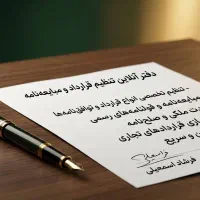 دفتر آنلاین تنظیم قرارداد و مبایعه‌نامه
- تنظیم تخصصی انواع قرارداد و توافق‌نامه‌ها
مبایعه‌نامه و قولنامه‌های رسمی
ملکی و صلح‌نامه
قراردادهای تجاری
و سریع
فرشاد اسمعیلی